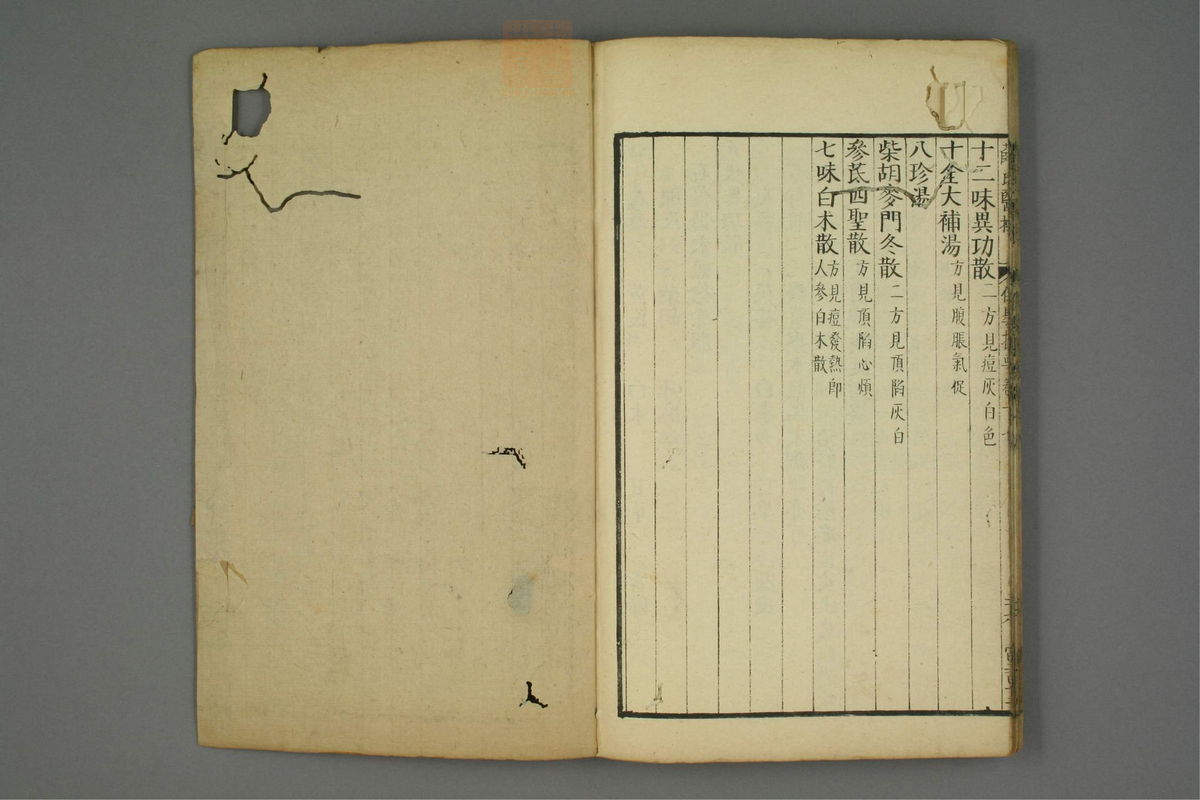 十二味異功散二方見痘灰白色
十全大補湯方見腹脹氣促
八珍湯
柴胡麥門冬散二方見頂陷灰白
參芪四聖散方見頂陷心煩
七味白术散方見痘發熱即
人參白木散